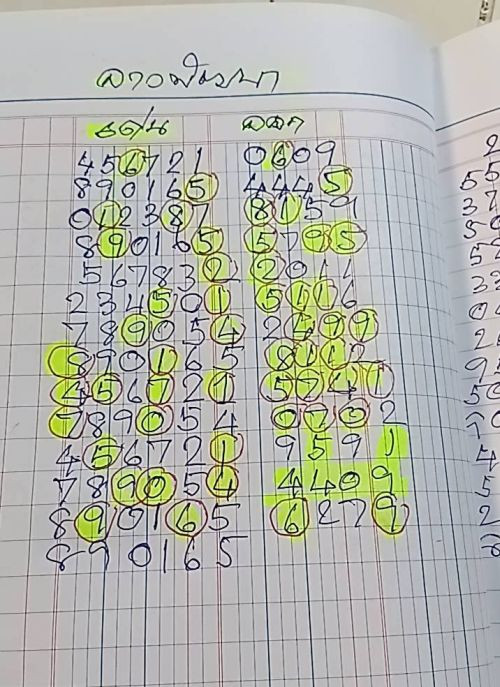 ลาวพัฒนา
เด่น ออก
456721 0609
890165 4445
012387 8159
890165 5795
567832 2011
234501 5416
789054 2499
890165 8112
456721 5741
789054 0702
456721 9591
789054 4409
890165 6279
890165
2
55
37